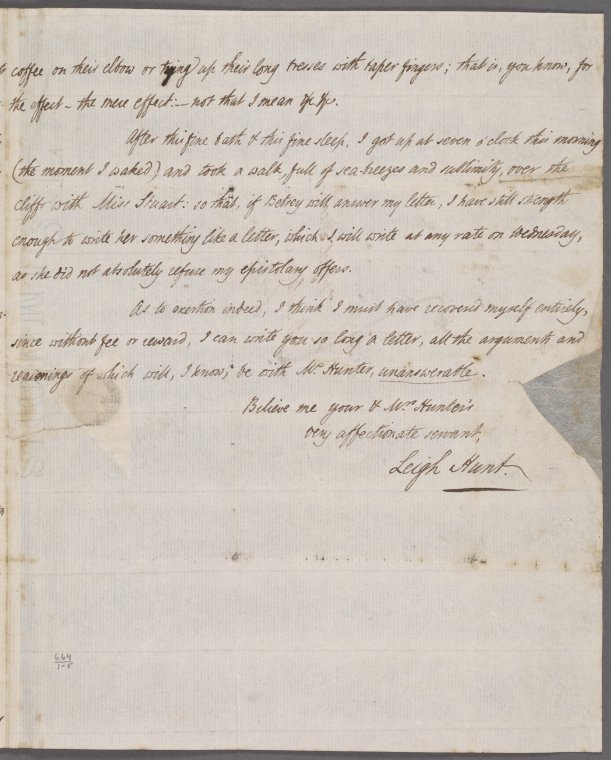 coffee on their elbow or tying up their long tresses with taper fingers; that is, you know, for
the effect – the mere effect: – not that I mean &c &c.
After this fine bath & this fine sleep, I got up at seven o'clock this morning
(the moment I waked) and took a walk, full of sea-breezes and sublimity, over the
cliffs with Miss Stuart: so that, if Betsey will answer my letter, I have still strength
enough to write her something like a letter, which I will write at any rate on Wednesday,
as she did not absolutely refuse my epistolary offers.
As to exertion indeed, I think I must have recovered myself entirely,
since without fee or reward, I can write you so long a letter, all the arguments and
reasonings of which will, I know, be with Mr. Hunter, unanswerable.
Believe me your & Mrs. Hunter's
very affectionate servant,
Leigh Hunt.
664
1-5